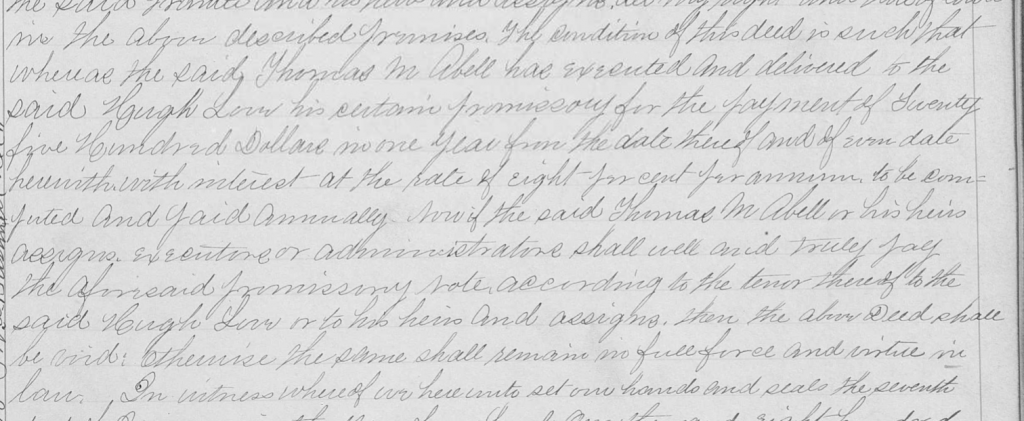 the said grantee and his heirs and assigns, all my right and
in the above described premises. The condition of this deed is such that
whereas the said Thomas M Abell has executed and delivered to the
said Hugh Love his certain promissory for the payment of Twenty
five Hundred Dollars in one year from the date thereof and of even date
herewith, with interest at the rate of eight per cent per annum. to be com=
puted and paid annually. Now if the said Thomas M Abell or his heirs
assigns. executors or administrators shall well and truly pay
the aforesaid promissory note, according to the tenor thereof to the
said Hugh Love or to his heirs and assigns. then the above Deed shall
be void: Otherwise the same shall remain in full force and virtue in
law. In witness whereof we hereunto set our hands and seals the seventh